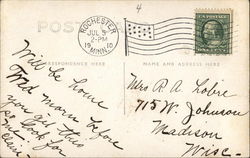 4
POST
ROCHESTER
JUL 5
2-PM
1910
MINN.
CORRESPONDENCE HERE
NAME AND ADDRESS HERE
Will be home
Wed morn before
you get this
so look for
Mrs R. A. Lobre
715 W. Johnson
Madison
Wisc.